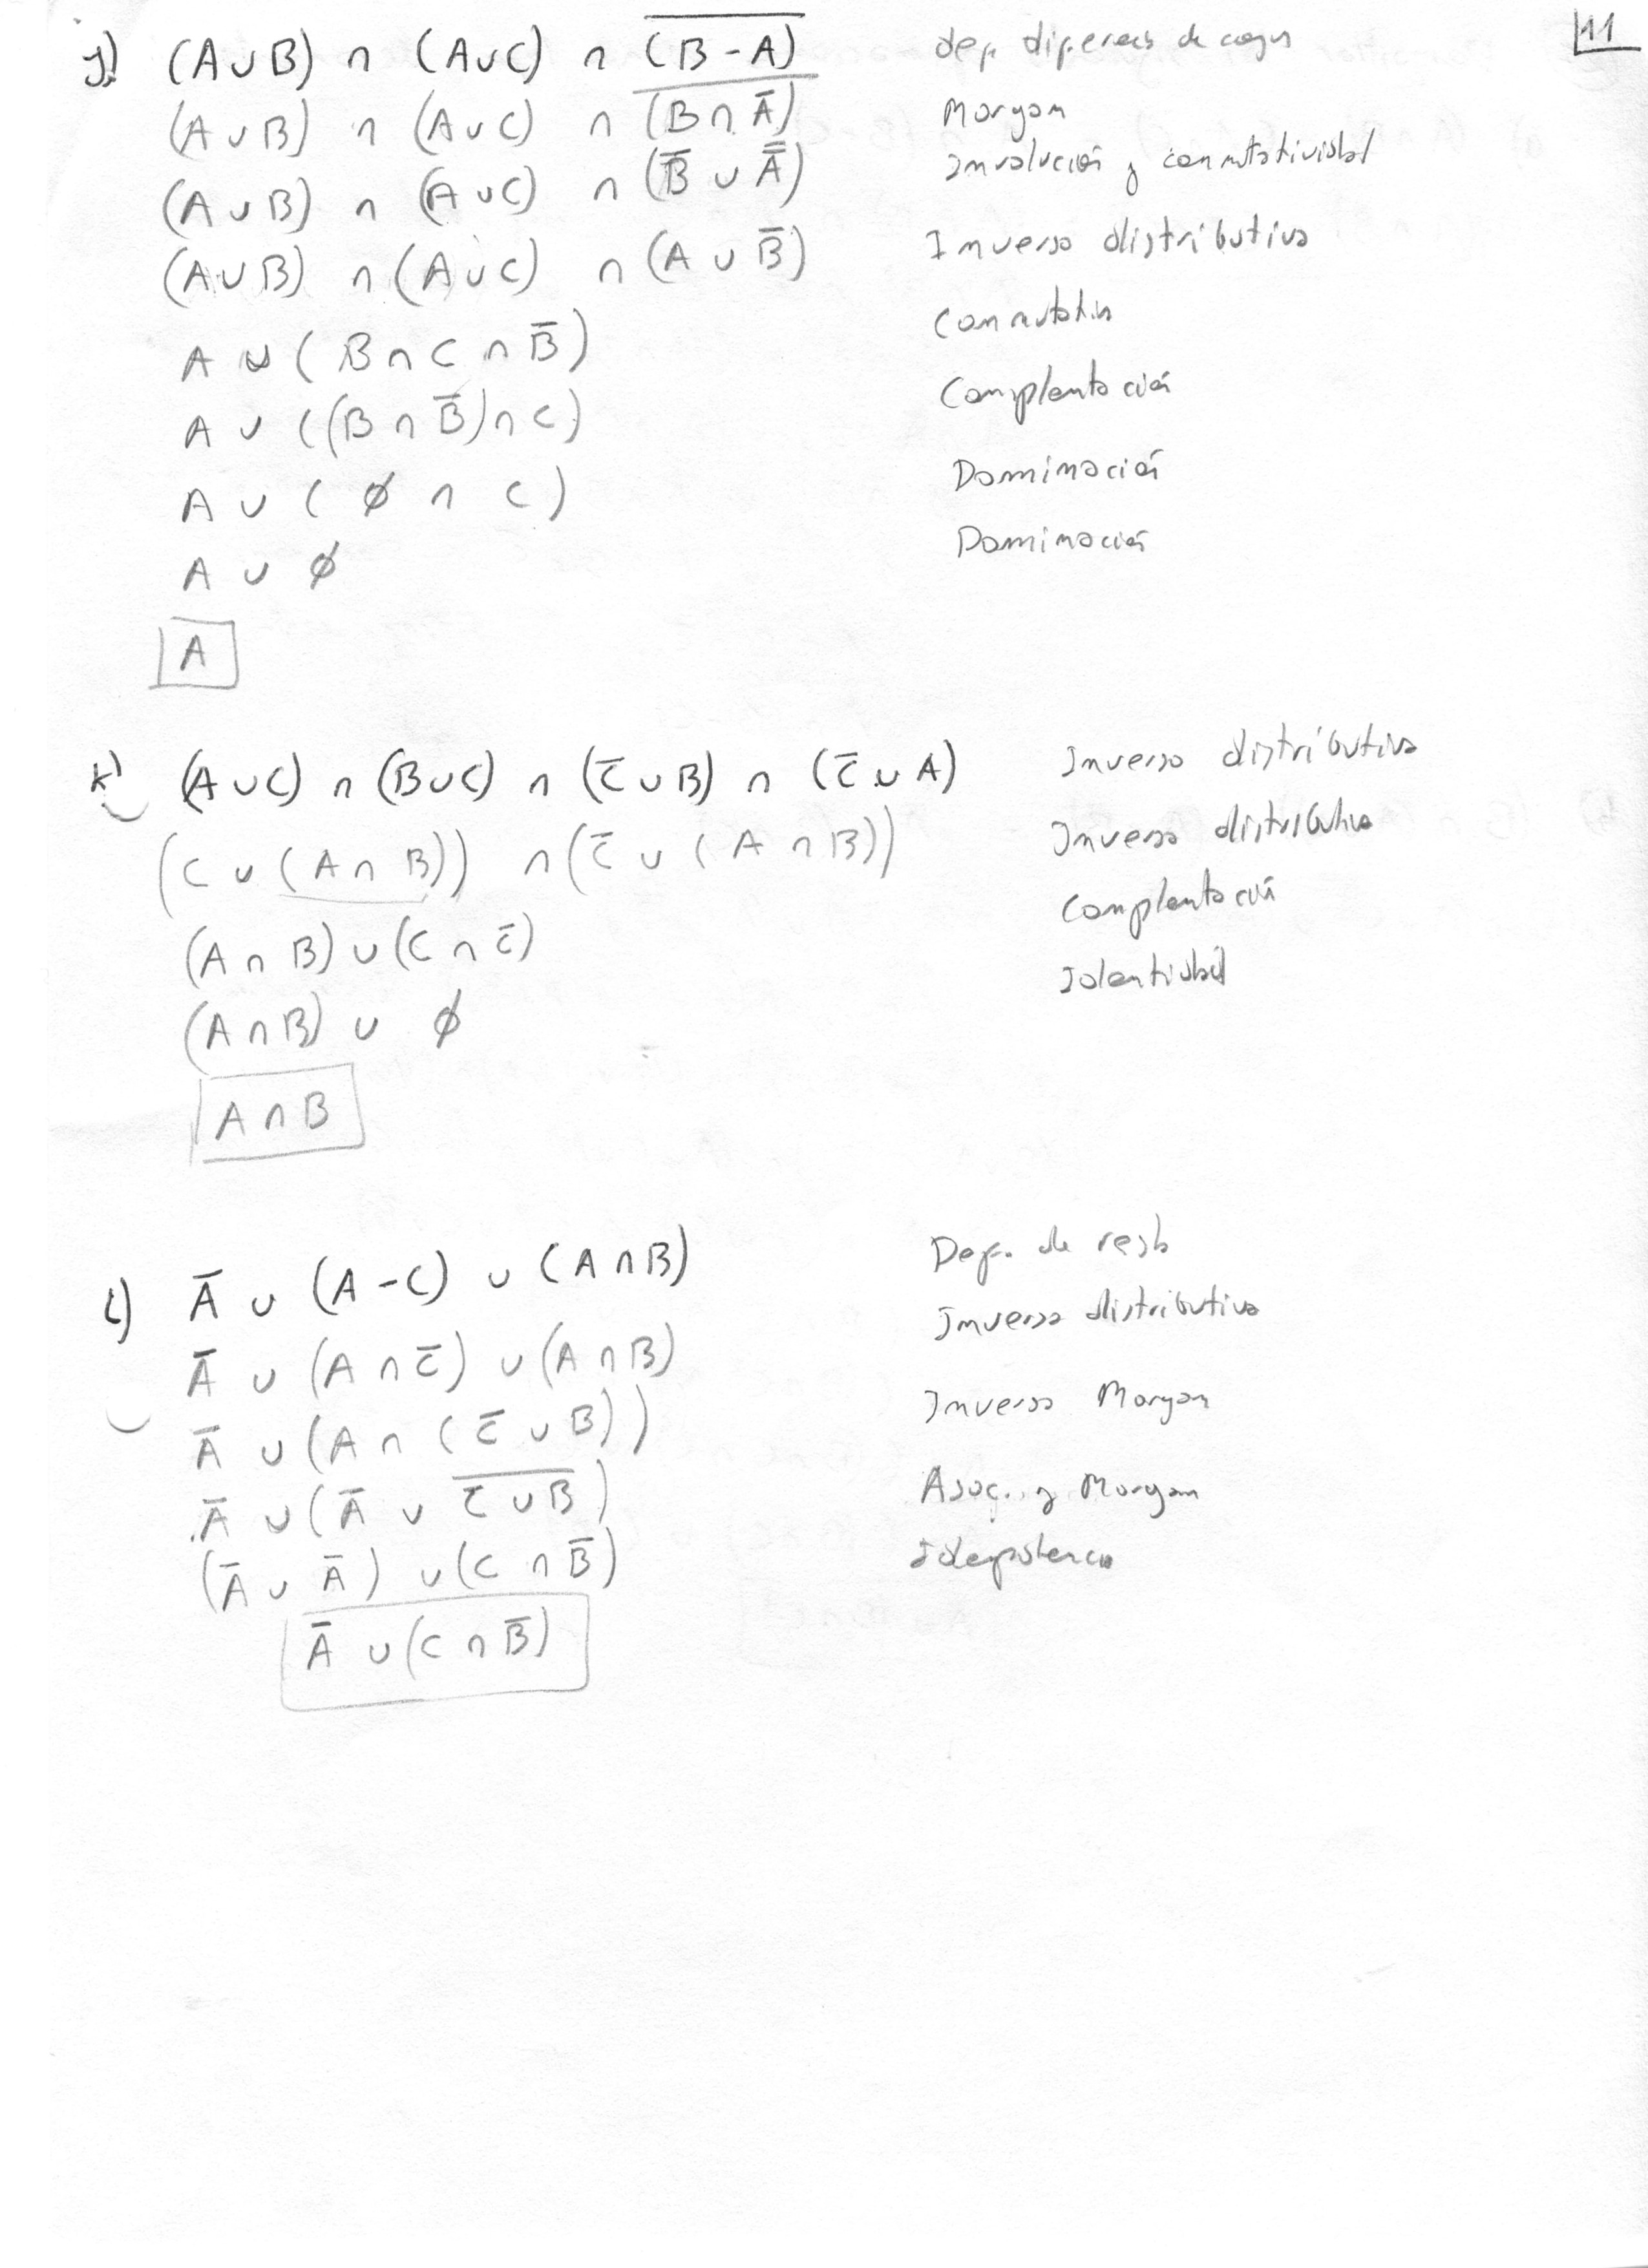 11
j) (A∪B) ∩ (A∪C) ∩ \overline{(B - A)} def. diferencia de
(A∪B) ∩ (A∪C) ∩ \overline{(B ∩ Ā)} Morgan
(A∪B) ∩ (A∪C) ∩ (B̄ ∪ \overline{Ā}) Involución y conmutatividad
(A∪B) ∩ (A∪C) ∩ (A ∪ B̄) Inversa distributiva
A ∪ (B ∩ C ∩ B̄) Conmutativa
A ∪ ((B ∩ B̄) ∩ C) Complentación
A ∪ (∅ ∩ C) Dominación
A ∪ ∅ Dominación
A
k) (A∪C) ∩ (B∪C) ∩ (C̄∪B) ∩ (C̄∪A) Inversa distributiva
(C ∪ (A∩B)) ∩ (C̄ ∪ (A∩B)) Inversa distributiva
(A∩B) ∪ (C∩C̄) Complentación
(A∩B) ∪ ∅ Identidad
A∩B
l) Ā ∪ (A-C) ∪ (A∩B) Def. de resta
Ā ∪ (A∩C̄) ∪ (A∩B) Inversa distributiva
Ā ∪ (A ∩ (C̄∪B)) Inversa Morgan
Ā ∪ (Ā ∪ \overline{C̄∪B}) Asoc. y Morgan
(Ā ∪ Ā) ∪ (C ∩ B̄) Idempotencia
Ā ∪ (C ∩ B̄)